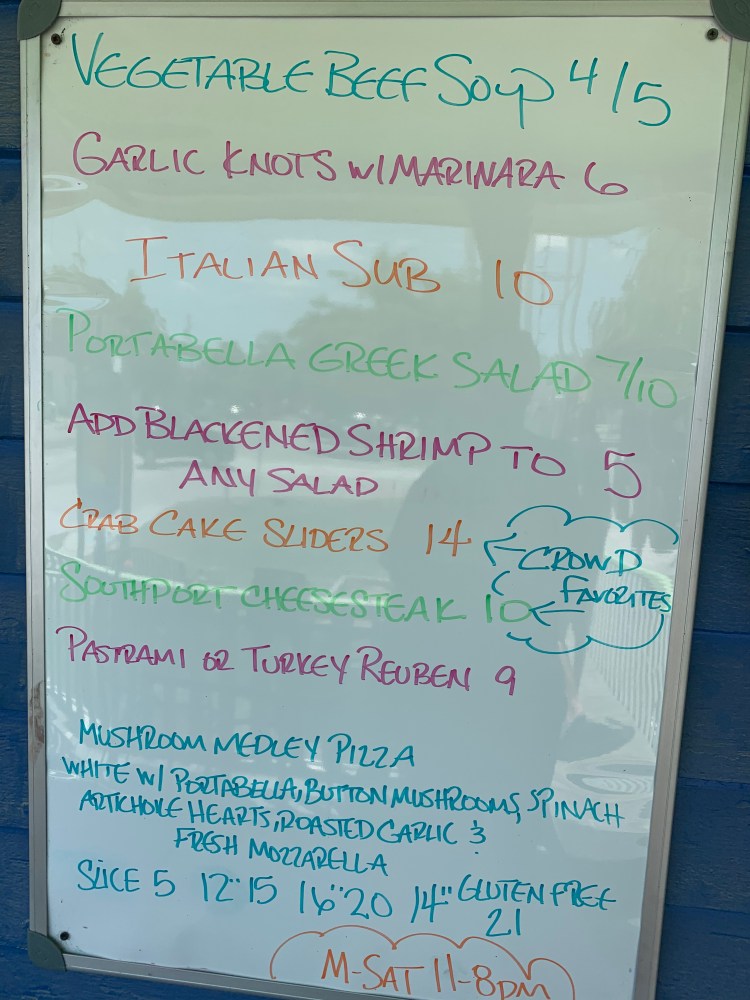 VEGETABLE BEEF SOUP 4/5
GARLIC KNOTS W/ MARINARA 6
ITALIAN SUB 10
PORTABELLA GREEK SALAD 7/10
ADD BLACKENED SHRIMP TO 5
ANY SALAD
CRAB CAKE SLIDERS 14 ← CROWD
FAVORITES
SOUTHPORT CHEESESTEAK 10 ←
PASTRAMI OR TURKEY REUBEN 9
MUSHROOM MEDLEY PIZZA
WHITE W/ PORTABELLA, BUTTON MUSHROOMS, SPINACH
ARTICHOKE HEARTS, ROASTED GARLIC &
FRESH MOZZARELLA
SLICE 5 12" 15 16" 20 14" GLUTEN FREE
21
M-SAT 11-8PM